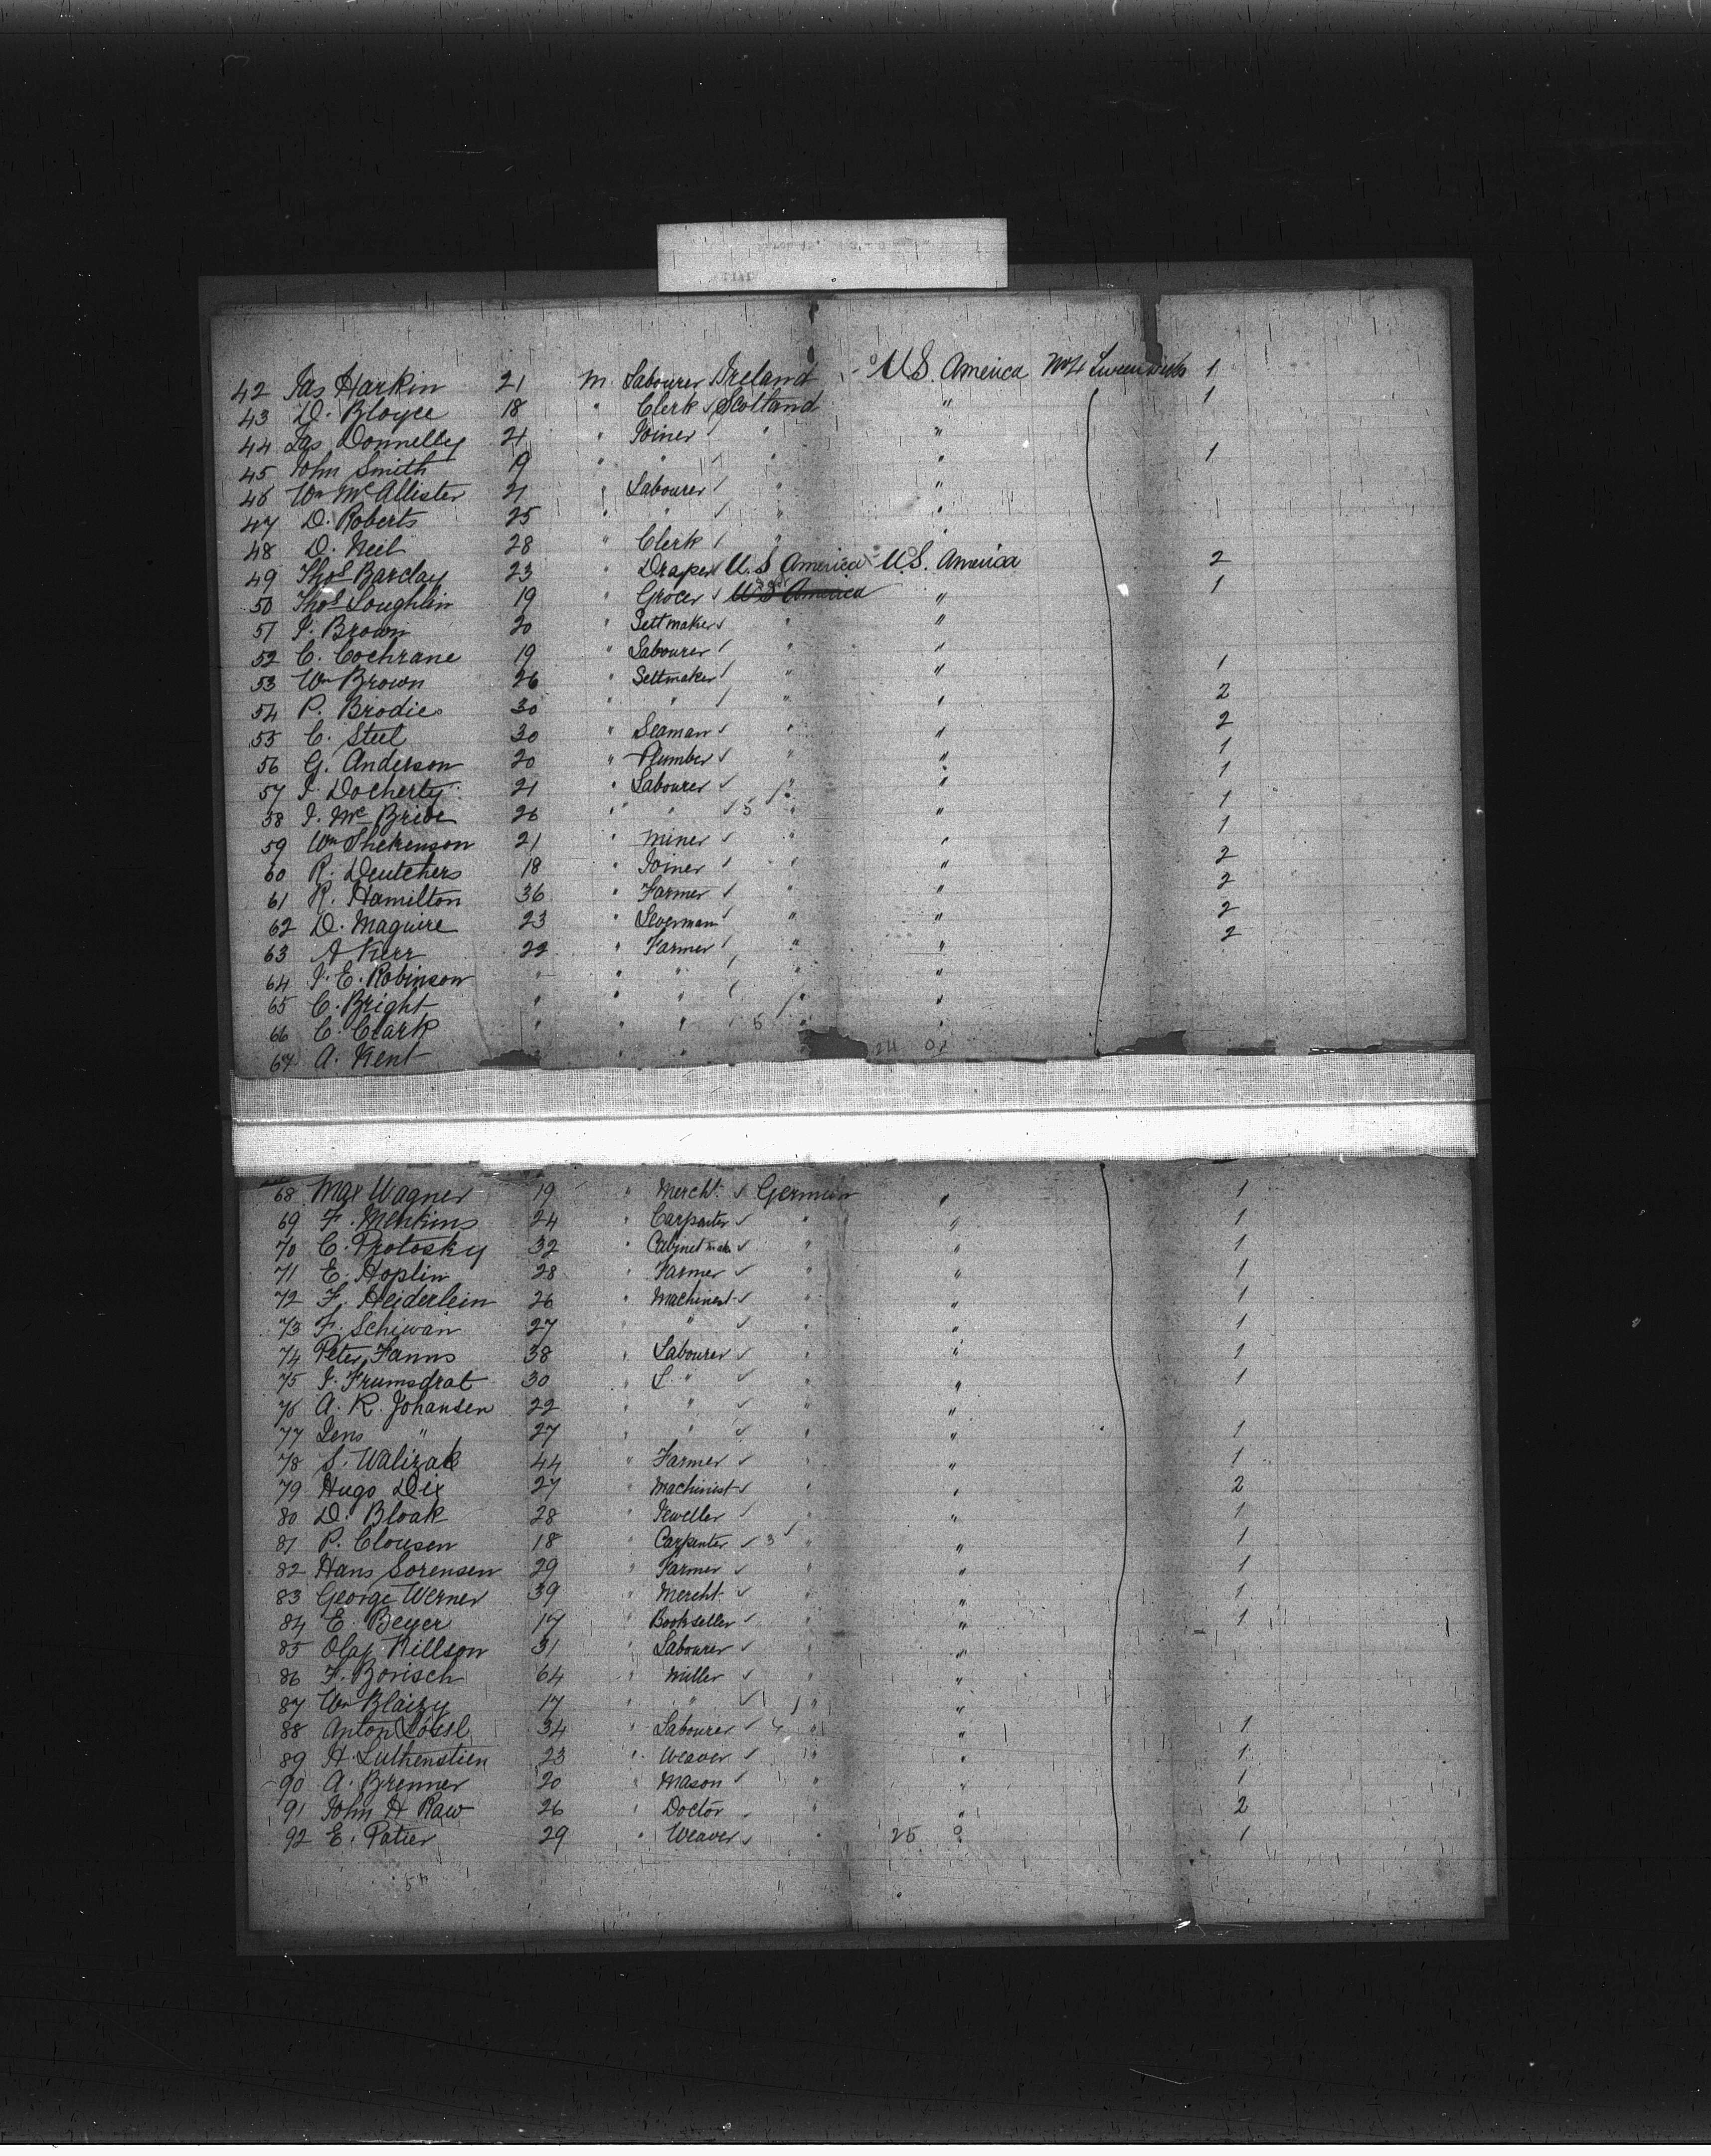 42 Jas Harkin 21 m. Labourer Ireland U.S. America No 4 Tween Decks 1
43 D. Bloyce 18 " Clerk Scotland " 1
44 Jas Donnelly 21 " Joiner " "
45 John Smith 19 " " " " 1
46 Wm McAllister 21 " Labourer " "
47 D. Roberts 25 " " " "
48 D. Neil 28 " Clerk "
49 Thos Barclay 23 " Draper U.S America U.S. America 2
50 Thos Loughlin 19 " Grocer U S America " 1
51 J. Brown 20 " Settmaker " "
52 C. Cochrane 19 " Labourer " "
53 Wm Brown 26 " Settmaker " " 1
54 P. Brodie 30 " " " " 2
55 C. Steel 30 " Seaman " " 2
56 G. Anderson 20 " Plumber " " 1
57 J. Docherty 21 " Labourer " " 1
58 J. McBride 26 " " 5 " " 1
59 Wm 21 " miner " " 1
60 R. Deutchers 18 " Joiner " " 2
61 R. Hamilton 36 " Farmer " " 2
62 D. Maguire 23 " " " 2
63 A Kerr 22 " Farmer " " 2
64 J. E. Robinson " " " " "
65 C. Bright " " " " "
66 C. Clark " " " 5 " "
67 A. Kent " " 24
68 Max Wagner 19 " Mercht. German " 1
69 F. Menkins 24 " Carpenter " " 1
70 C. Protosky 32 " Cabinet mak " " 1
71 E. Hoplin 28 " Farmer " " 1
72 F. Heiderlein 26 " Machinist " " 1
73 F. Schiwan 27 " " " " 1
74 Peter Fanns 38 " Labourer " " 1
75 J. Frumsdrat 30 " L " " " 1
76 A. K. Johansen 22 " " " "
77 Jens " 27 " " " " 1
78 S. Walizak 44 " Farmer " " 1
79 Hugo Dix 27 " Machinist " " 2
80 D. Bloak 28 " Jeweller " " 1
81 P. Clousen 18 " Carpenter 3 " " 1
82 Hans Sorensen 29 " Farmer " " 1
83 George Werner 39 " Mercht. " " 1
84 E. Beyer 17 " Bookseller " " 1
85 Olaf Nillson 31 " Labourer " "
86 F. Borisch 64 " Miller " "
87 Wm Blaizy 17 " " " "
88 Anton 34 " Labourer 4 " " 1
89 H. Luthenstien 23 " Weaver " " 1
90 A. Brenner 20 " Mason " " 1
91 John H Raw 26 " Doctor " " 2
92 E. Patier 29 " Weaver " 25 1